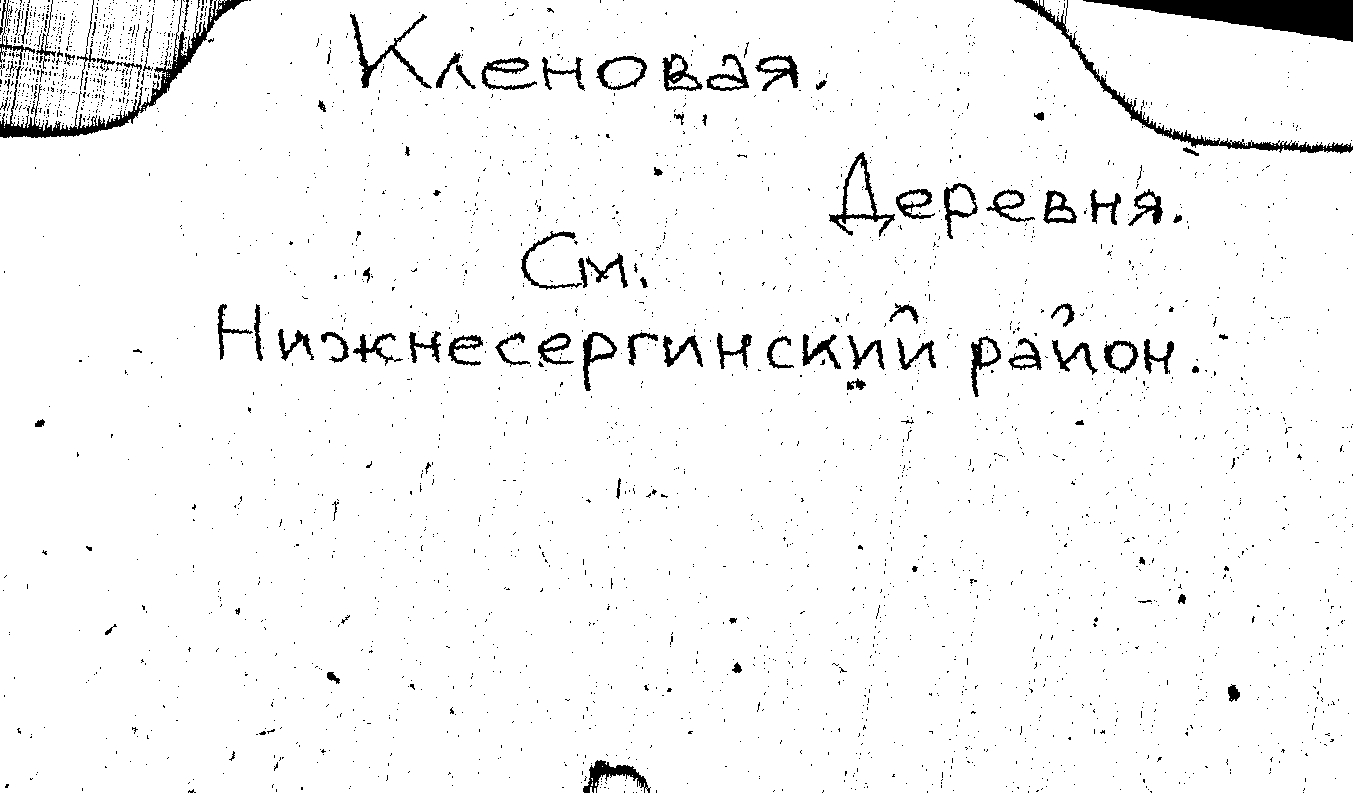 Кленовая.
Деревня.
См.
Нижнесергинский район.